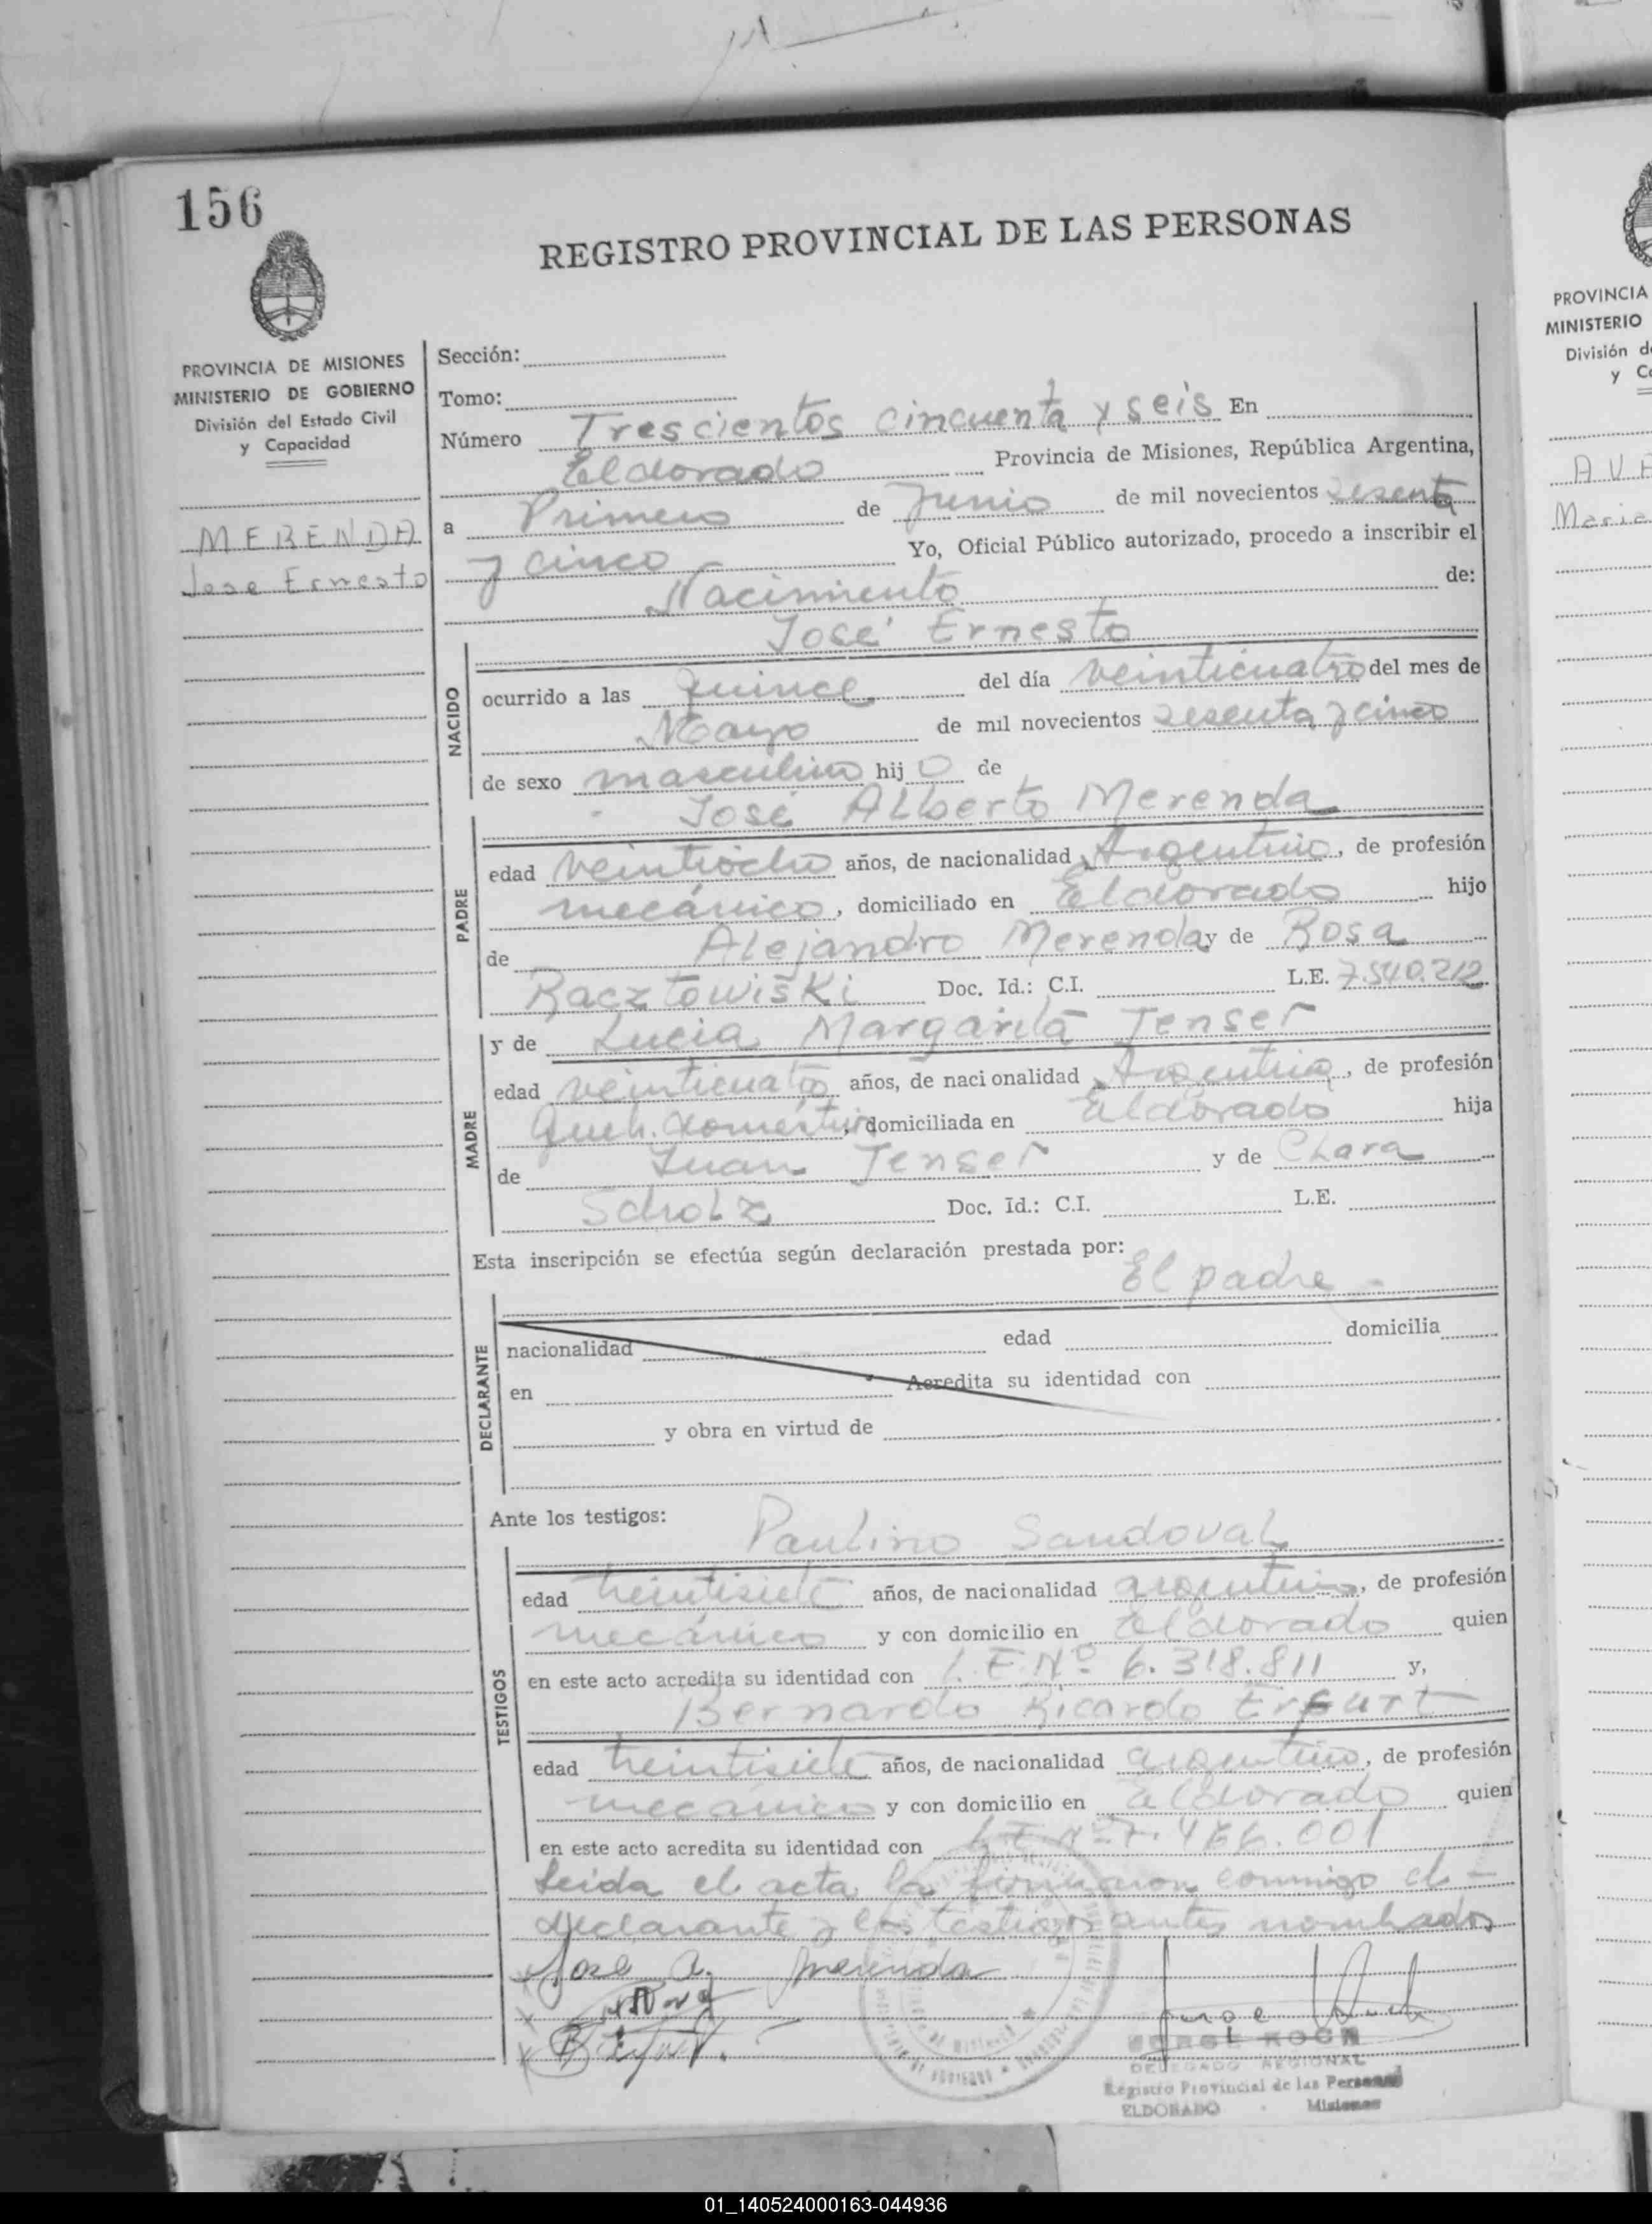 156
REGISTRO PROVINCIAL DE LAS PERSONAS
PROVINCIA DE MISIONES
MINISTERIO DE GOBIERNO
División del Estado Civil
y Capacidad
MERENDA
Jose Ernesto
Sección:
Tomo:
Número Trescientos cincuenta y seis En
Eldorado Provincia de Misiones, República Argentina,
a Primero de Junio de mil novecientos sesenta
y cinco Yo, Oficial Público autorizado, procedo a inscribir el
Nacimiento de:
José Ernesto
NACIDO
ocurrido a las quince del día veinticuatro del mes de
Mayo de mil novecientos sesenta y cinco
de sexo masculino hij o de
José Alberto Merenda
PADRE
edad veintiocho años, de nacionalidad Argentino, de profesión
mecánico, domiciliado en Eldorado hijo
de Alejandro Merenda y de Rosa
Racztowiski Doc. Id.: C.I. L.E. 7.540.212
y de Lucia Margarita Jenser
MADRE
edad veinticuatro años, de nacionalidad Argentina, de profesión
Queh. domésticos, domiciliada en Eldorado hija
de Juan Jenser y de Clara
Scholz Doc. Id.: C.I. L.E.
Esta inscripción se efectúa según declaración prestada por:
El padre
DECLARANTE
nacionalidad edad domicilia
en Acredita su identidad con
y obra en virtud de
Ante los testigos:
Paulino Sandoval
TESTIGOS
edad treintisiete años, de nacionalidad argentino, de profesión
mecánico y con domicilio en Eldorado quien
en este acto acredita su identidad con L.E.Nº 6.318.811 y,
Bernardo Ricardo Erfurt
edad treintisiete años, de nacionalidad argentino, de profesión
mecánico y con domicilio en Eldorado quien
en este acto acredita su identidad con L.E.Nº 7.466.001
Leida el acta la firmaron conmigo el
declarante y los testigos antes nombrados
Jose A. Merenda
JORGE KOCH
DELEGADO REGIONAL
Registro Provincial de las Personas
ELDORADO - Misiones
PROVINCIA
MINISTERIO
División de
y Ca
Maria
01_140524000163-044936